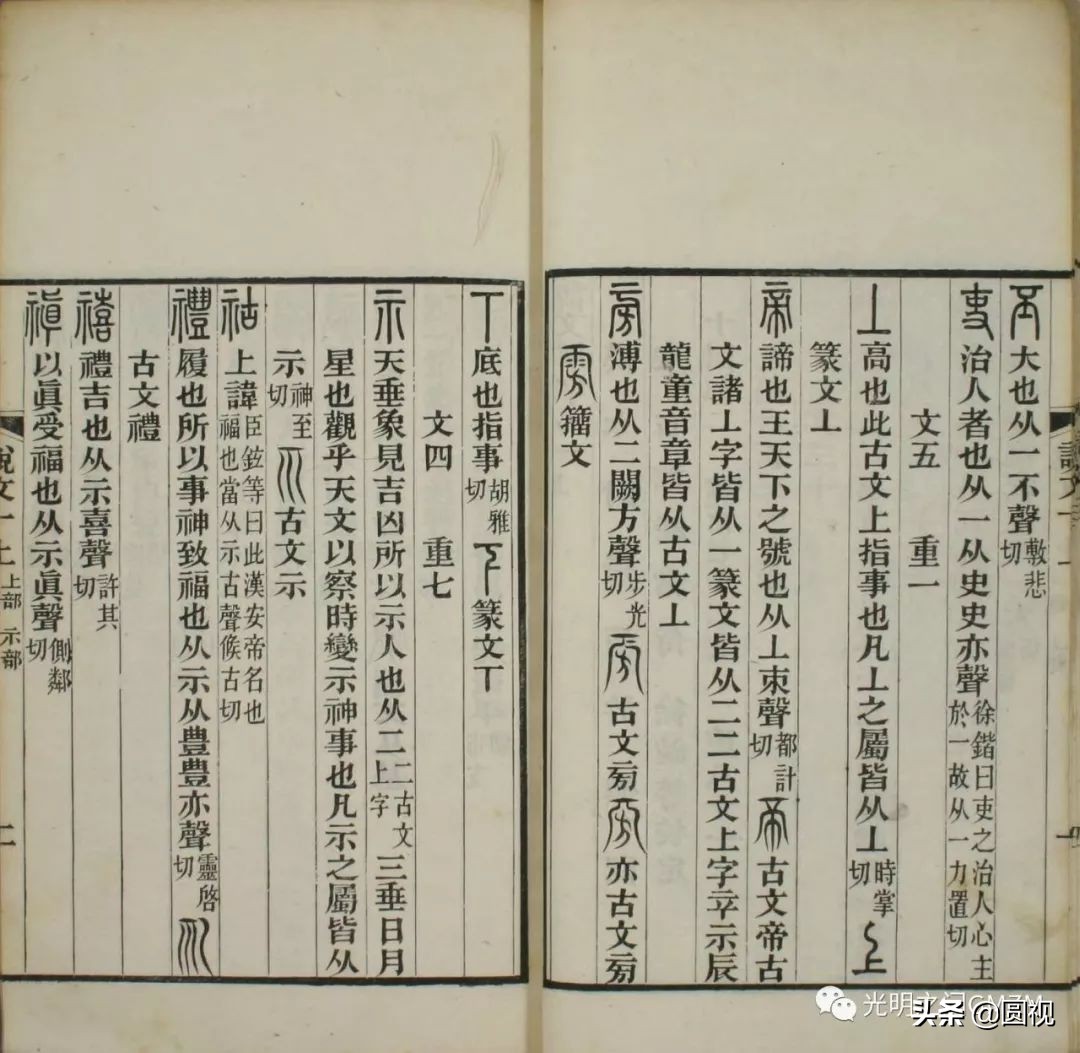 丕大也从一不聲敷悲切
吏治人者也从一从史史亦聲徐鍇曰吏之治人心主於一故从一力置切
文五　重一
丄高也此古文上指事也凡丄之屬皆从丄時掌切𠄞
篆文丄
帝諦也王天下之號也从丄朿聲都計切帝古文帝古
文諸丄字皆从一篆文皆从二二古文上字䇂示辰
龍童音章皆从古文丄
旁溥也从二闕方聲步光切㫄古文㫄㫄亦古文㫄
雱籒文
丅底也指事胡雅切𠄟篆文丅
文四　重七
示天垂象見吉凶所以示人也从二二古文上字三垂日月
星也觀乎天文以察時變示神事也凡示之屬皆从
示神至切𥘅古文示
祜上諱臣鉉等曰此漢安帝名也福也當从示古聲候古切
禮履也所以事神致福也从示从豊豊亦聲靈啓切𠃞
古文禮
禧禮吉也从示喜聲許其切
禛以眞受福也从示眞聲側鄰切
說文一上　上部　示部　二
光明之门GMZM
头条 @圆视